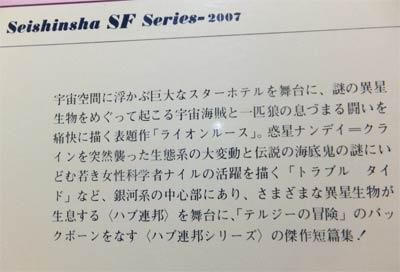 Seishinsha SF Series-2007
宇宙空間に浮かぶ巨大なスターホテルを舞台に、謎の異星
生物をめぐって起こる宇宙海賊と一匹狼の息づまる闘いを
痛快に描く表題作「ライオンルース」。惑星ナンデイ＝クラ
インを突然襲った生態系の大変動と伝説の海底鬼の謎にい
どむ若き女性科学者ナイルの活躍を描く「トラブル タイ
ド」など、銀河系の中心部にあり、さまざまな異星生物が
生息する〈ハブ連邦〉を舞台に、「テルジーの冒険」のバッ
クボーンをなす〈ハブ連邦シリーズ〉の傑作短篇集！